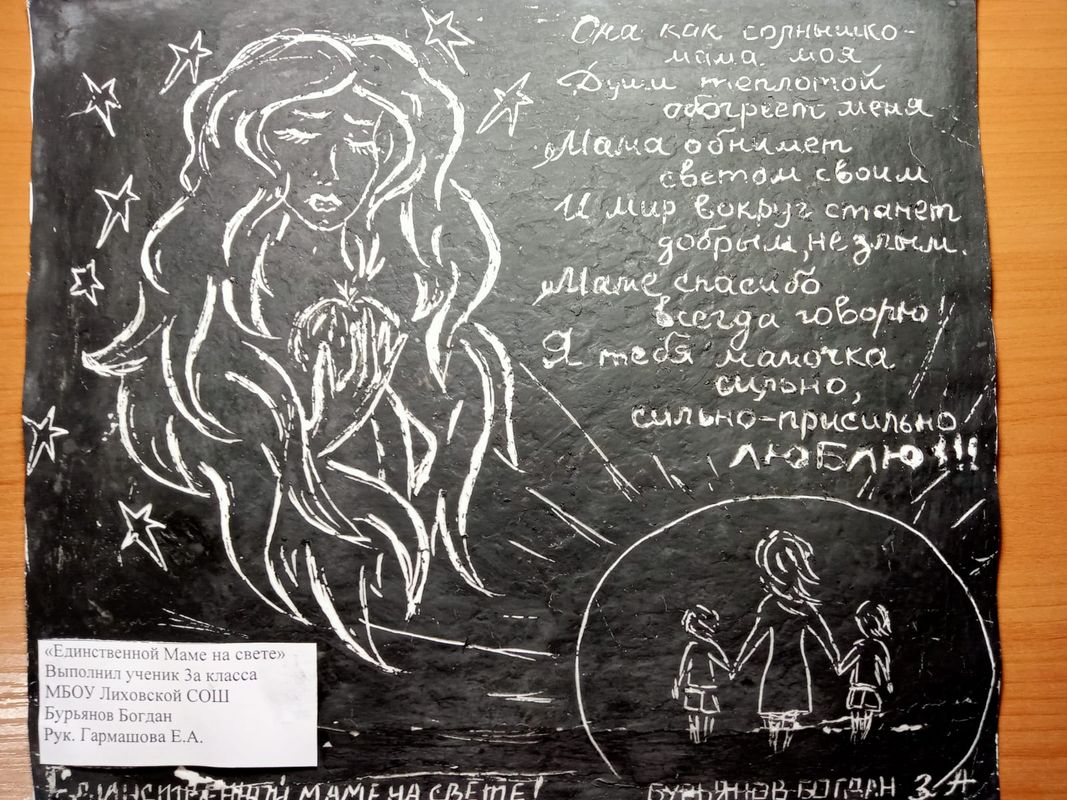 Она как солнышко-
мама моя
Души теплотой
обогреет меня
Мама обнимет
светом своим
И мир вокруг станет
добрым, не злым.
Маме спасибо
всегда говорю!
Я тебя мамочка
сильно,
сильно-присильно
ЛЮБЛЮ!!!
«Единственной Маме на свете»
Выполнил ученик 3а класса
МБОУ Лиховской СОШ
Бурьянов Богдан
Рук. Гармашова Е.А.
ЕДИНСТВЕННОЙ МАМЕ НА СВЕТЕ!
БУРЬЯНОВ БОГДАН 3 А